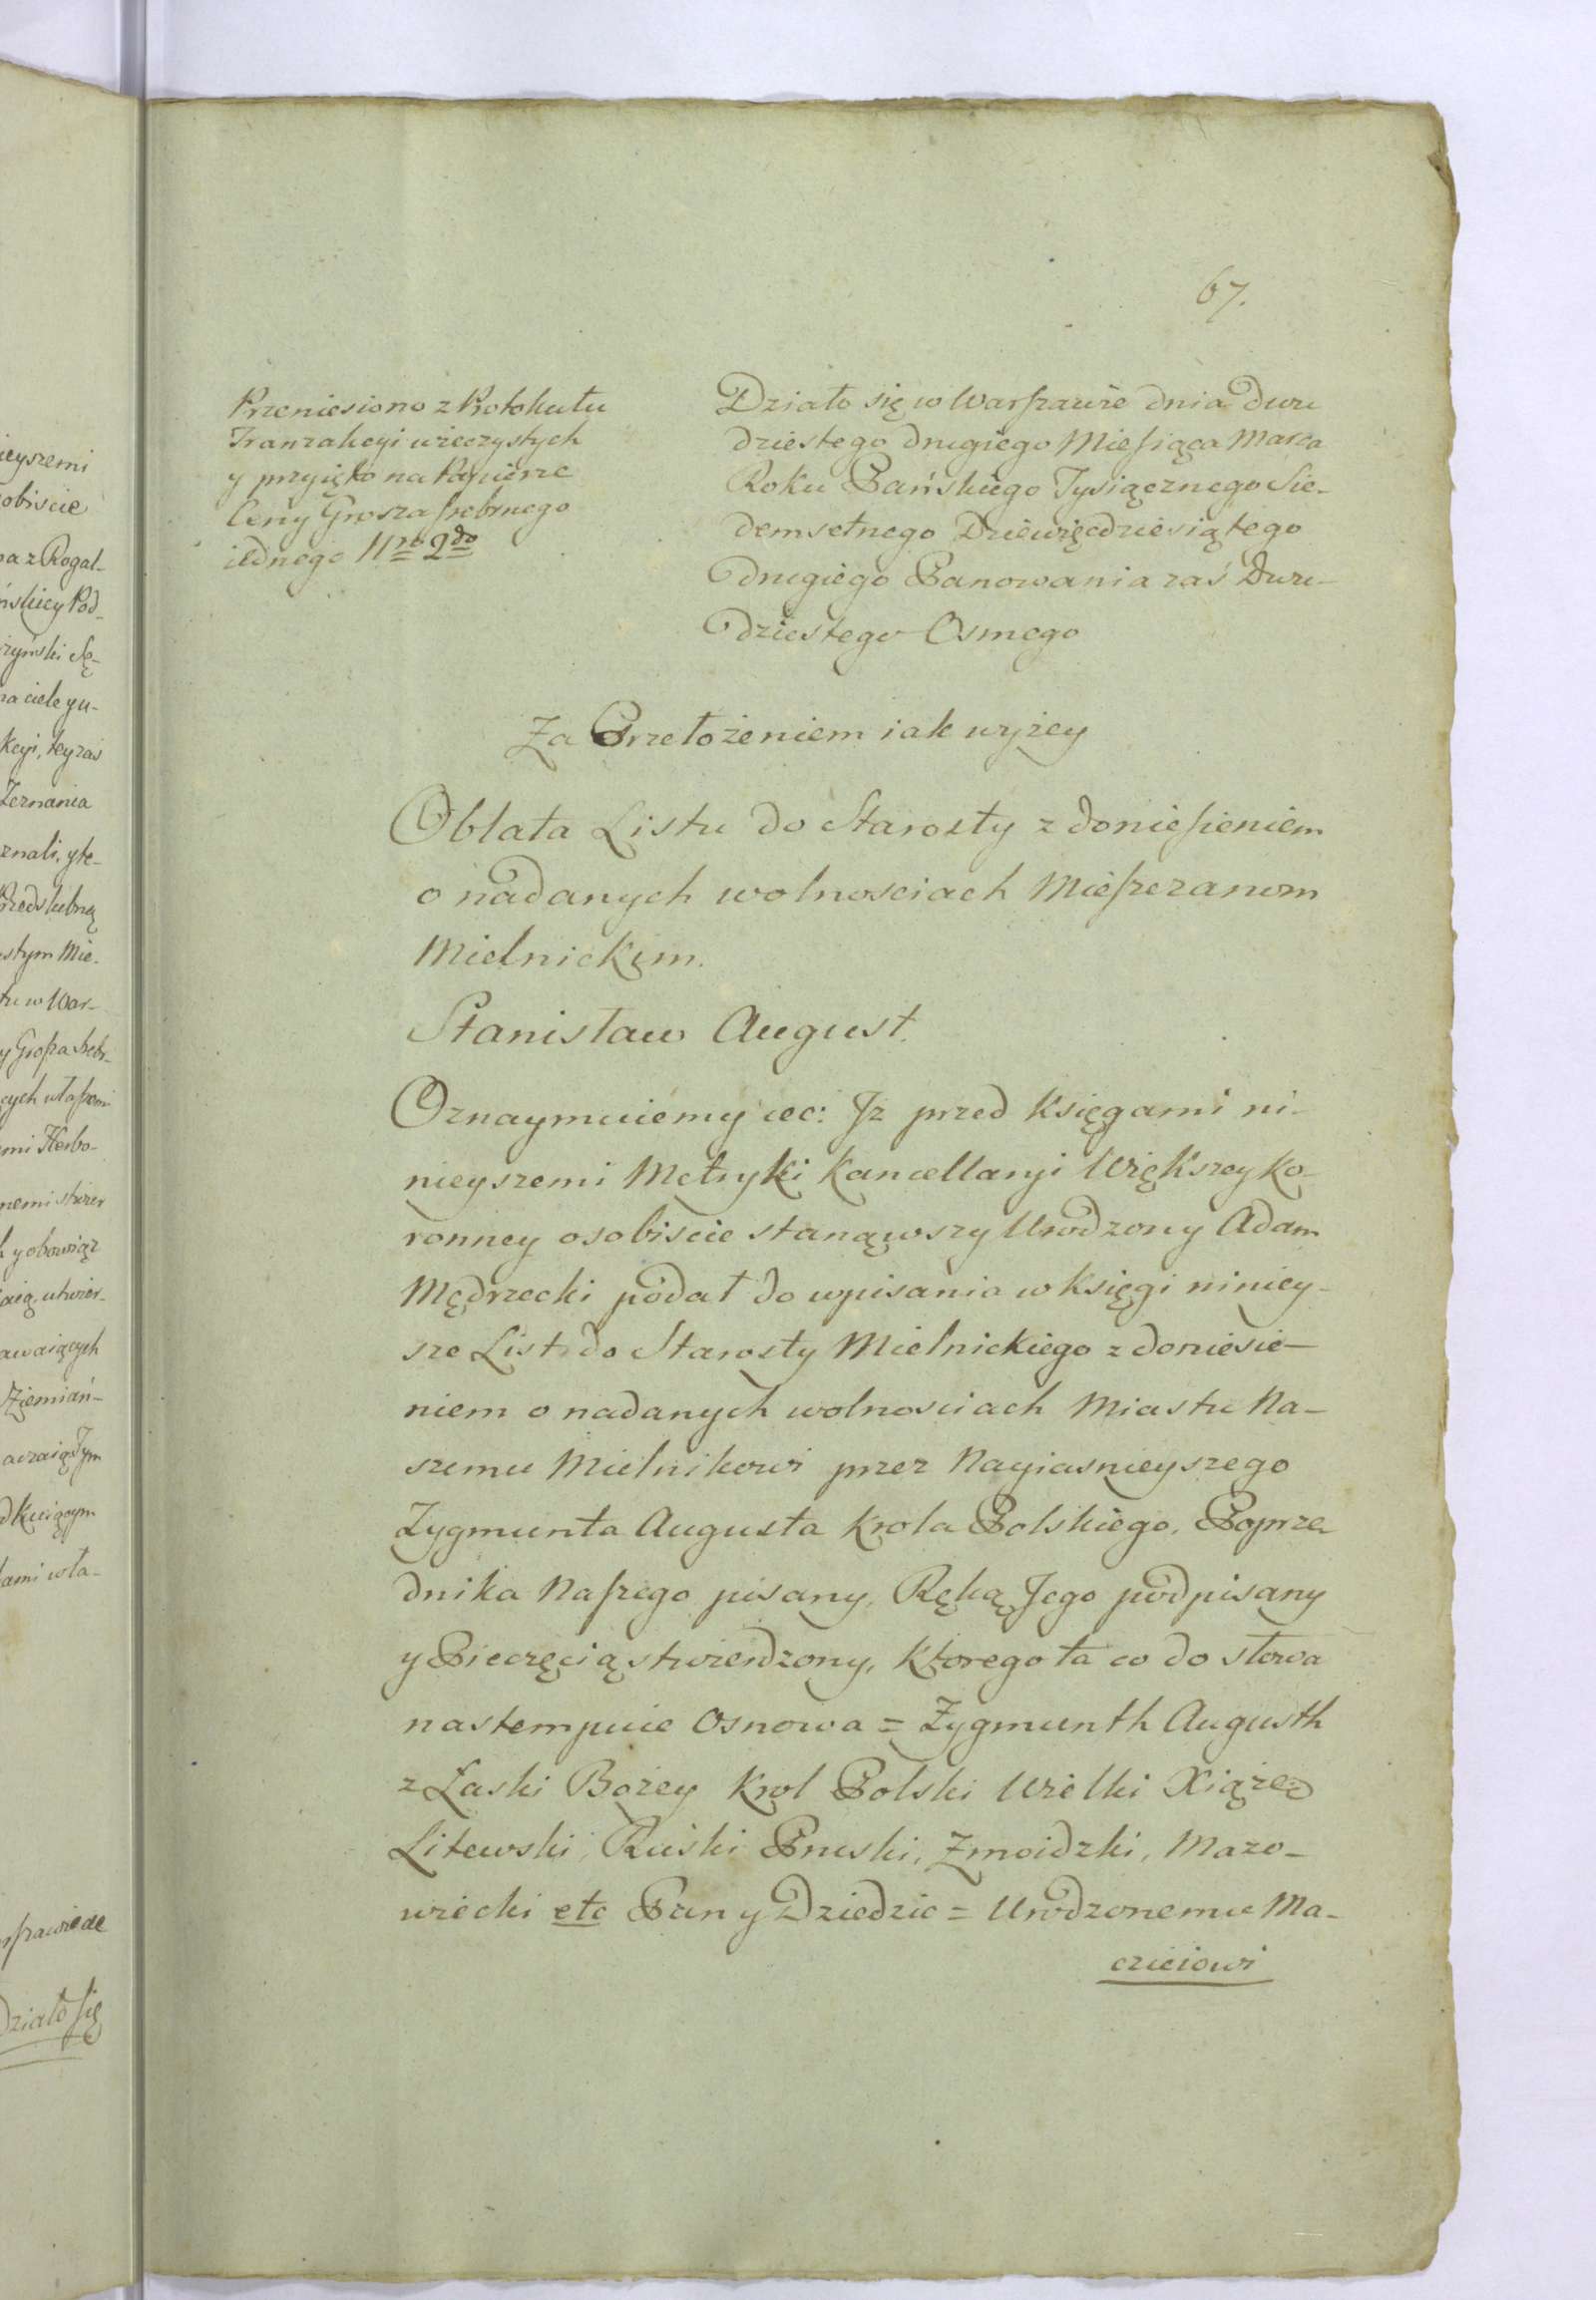 67.
Przeniesiono z Protokułu
Tranzakcyi wieczystych
y przyięto na Papierze
Ceny Grosza srebrnego
iednego 11ro 2do
Działo się w Warszawie dnia Dwu
dziestego drugiego Miesiąca Marca
Roku Pańskiego Tysiącznego Sie-
demsetnego Dziewięcdziesiątego
drugiego Panowania zaś Dwu-
dziestego Osmego
Za Przełożeniem iak wyżey
Oblata Listu do Starosty z doniesieniem
o nadanych wolnosciach Mieszczanom
Mielnickim.
Stanisław August.
Oznaymuiemy etc: Jż przed Księgami ni-
nieyszemi Metryki Kancellaryi Większey Ko-
ronney osobiscie stanąwszy Urodzony Adam
Mędrzecki podał do wpisania w Księgi niniey-
sze List do Starosty Mielnickiego z doniesie-
niem o nadanych wolnosciach Miastu Na-
szemu Mielnikowi przez Nayiasnieyszego
Zygmunta Augusta Krola Polskiego, Poprze-
dnika Naszego pisany, Ręką Jego podpisany
y Pieczęcią stwierdzony, Ktorego ta co do słowa
nastempuie Osnowa = Zygmunth Augusth
z Łaski Bożey Krol Polski Wielki Xiąże
Litewski, Ruski Pruski, Zmoidzki, Mazo-
wiecki etc Pan y Dziedzic = Urodzonemu Ma-
cziciowi
ieyszemi
obiscie
a z Rogal-
ńskiey Pod-
rzyński Sę-
na ciele y u-
kcyi, tey zaś
Zeznania
znali, y te-
Przedslubną
stym Mie-
tu w War-
y Grosza srebr-
cych własnemi
mi Herbo-
nemi stwier
y obowiąz
aią, utwier-
awaiących
Ziemiań-
aczaią Tym
ami wła-
Działo się